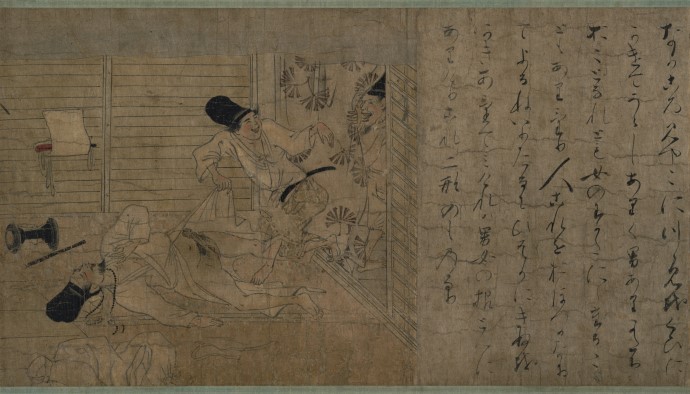 なかころ京都につゝみをくひに
かけてうらしありく男ありかたち
おとこなれとも女のすかたにゝたるこ
とありけり人これをおほつかなかり
てよるねいりたるにひそかにきぬを
かきあけてみけれは男女の根ともに
ありけりこれ二形のものなり